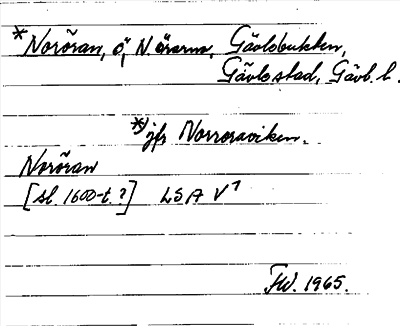 *Norõran, ö, N örarna, Gävlebukten,
Gävle stad, Gävb. l.
*) jfr Norroraviken.
Norõran
[sl. 1600-t.?] LSA V⁷
FW. 1965.